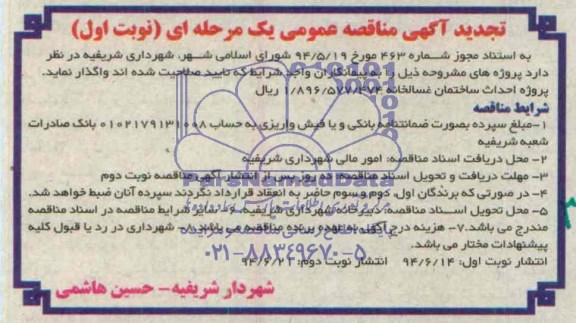 تجدید آگهی مناقصه عمومی یک مرحله ای (نوبت اول)
به استناد مجوز شماره ۴۶۳ مورخ ۹۴/۵/۱۹ شورای اسلامی شهر، شهرداری شریفیه در نظر
دارد پروژه های مشروحه ذیل را به پیمانکاران واجد شرایط که تایید صلاحیت شده اند واگذار نماید.
پروژه احداث ساختمان غسالخانه ۱/۸۹۶/۵۷۷/۴۷۴ ریال
شرایط مناقصه
۱-مبلغ سپرده بصورت ضمانتنامه بانکی و یا فیش واریزی به حساب ۰۱۰۲۱۷۹۱۳۱۰۰۸ بانک صادرات
شعبه شریفیه
۲- محل دریافت اسناد مناقصه: امور مالی شهرداری شریفیه
۳- مهلت دریافت و تحویل اسناد مناقصه: ده روز پس از انتشار آگهی مناقصه نوبت دوم
۴- در صورتی که برندگان اول، دوم و سوم حاضر به انعقاد قرارداد نگردند سپرده آنان ضبط خواهد شد.
۵- محل تحویل اسناد مناقصه: دبیرخانه شهرداری شریفیه ۶- سایر شرایط مناقصه در اسناد مناقصه
مندرج می باشد. ۷- هزینه درج آگهی به عهده برنده مناقصه می باشد. ۸- شهرداری در رد یا قبول کلیه
پیشنهادات مختار می باشد.
انتشار نوبت اول: ۹۴/۶/۱۴ انتشار نوبت دوم: ۹۴/۶/۲۱
شهردار شریفیه- حسین هاشمی
ParsNamadData
۰۲۱-۸۸۳۴۹۶۷۰-۵
۳